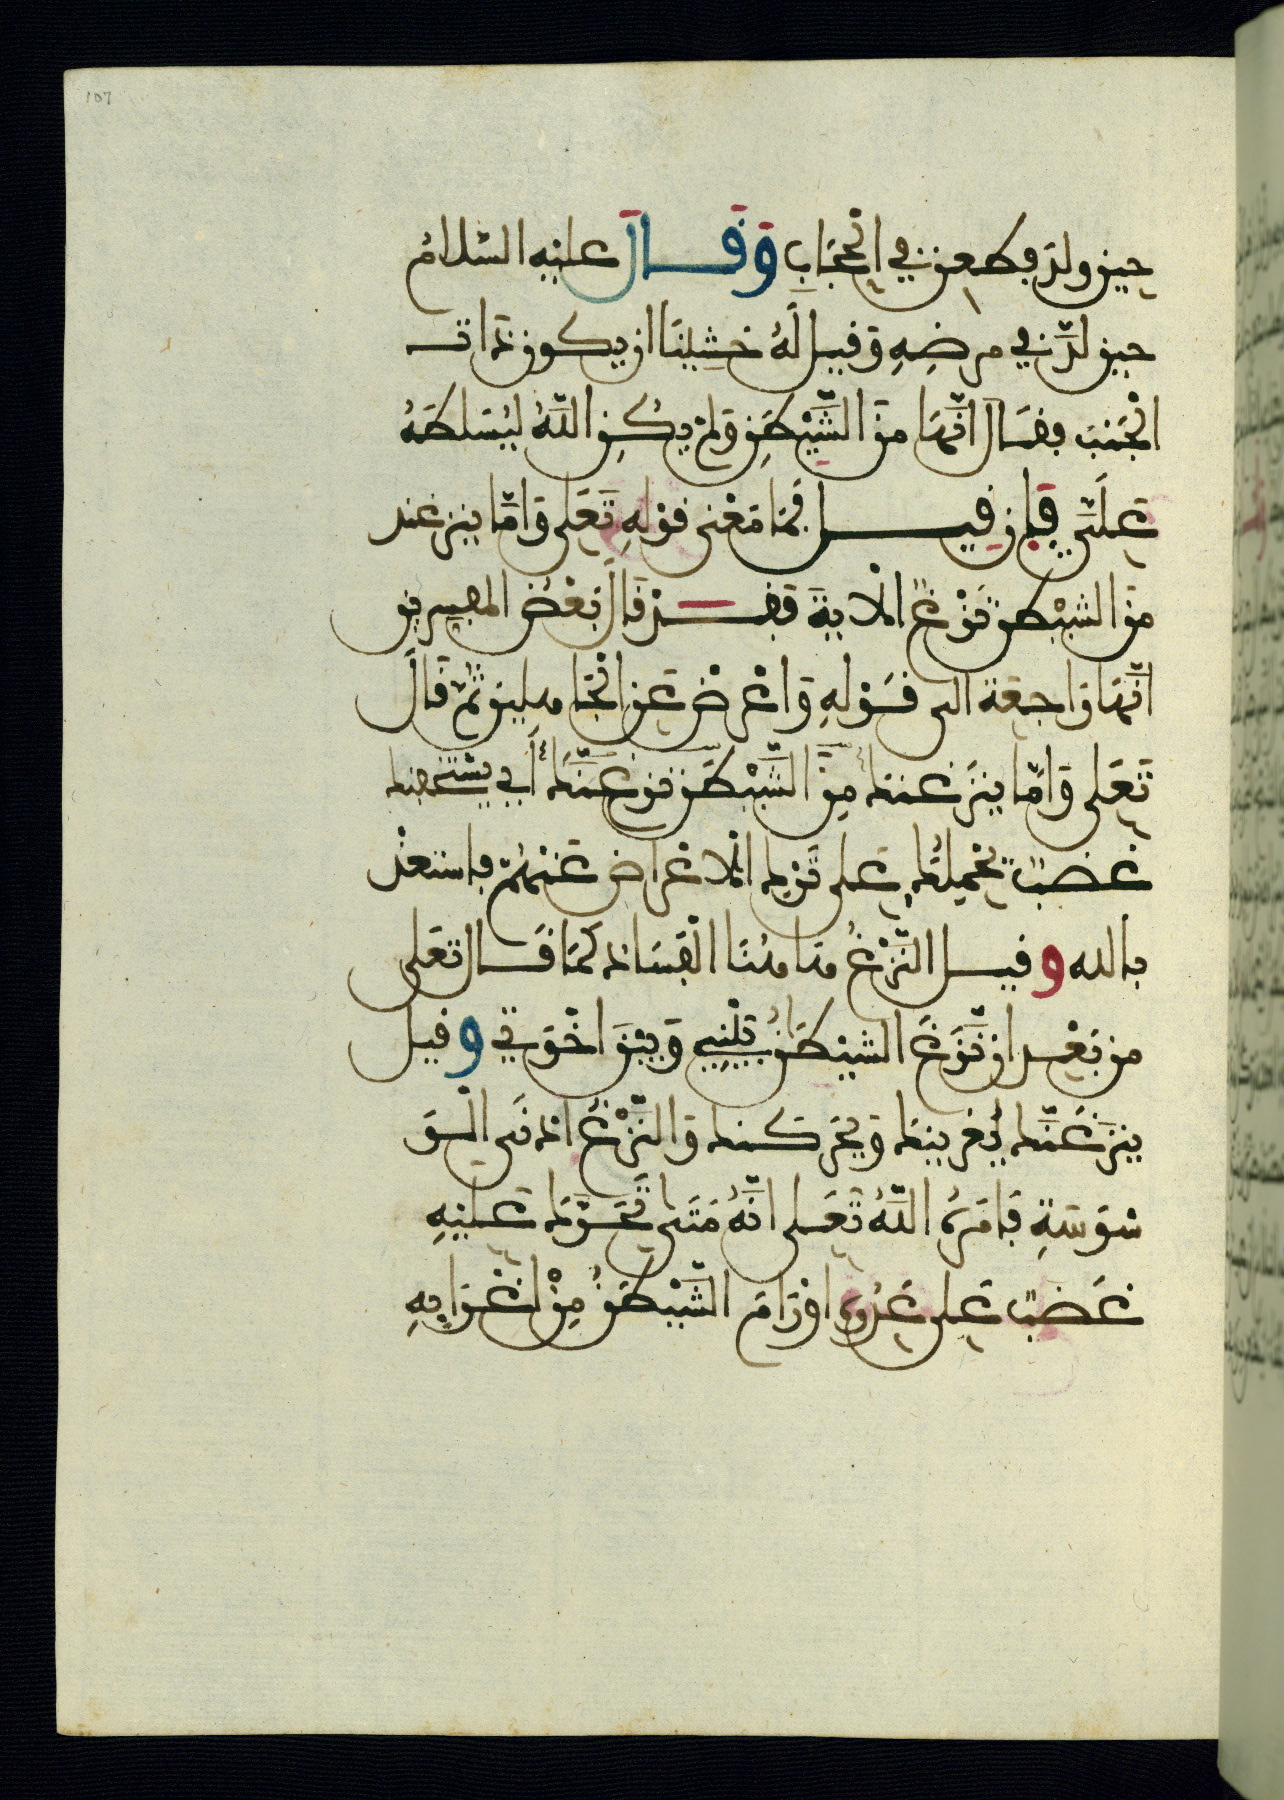 107
حين ولد فطعن في الحجاب وقال عليه السلام
حين لد في مرضه وقيل له خشينا ان يكون ذات
الجنب فقال انها من الشيطن ولم يكن الله ليسلطه
على فإن قيل فما معنى قوله تعلى واما ينزغنك
من الشيطن نزغ الاية فقد قال بعض المفسرين
انها راجعة الى قوله واعرض عن الجاهلين ثم قال
تعلى واما ينزغنك من الشيطن نزغ أي يستخفنك
غضب يحملك على ترك الاعراض عنهم فاستعذ
بالله وقيل النزغ هنا هنا الفساد كما قال تعلى
من بعد ان نزغ الشيطن بيني وبين اخوتي وقيل
ينزغنك يغرينك ويحركنك والنزغ ادنى الو
سوسة فامره الله تعلى انه متى تحرك عليه
غضب على عدوه او رام الشيطن من اغرايه